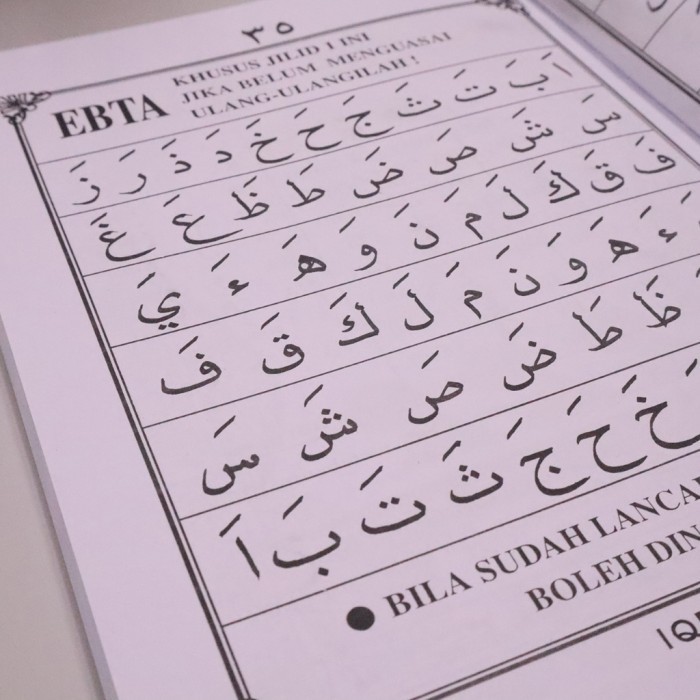 ٣٥
EBTA
KHUSUS JILID 1 INI
JIKA BELUM MENGUASAI
ULANG-ULANGILAH !
اَ بَ تَ ثَ جَ حَ خَ دَ ذَ رَ زَ
سَ شَ صَ ضَ طَ ظَ عَ غَ
فَ قَ كَ لَ مَ نَ وَ هَ ءَ يَ
ءَ هَ وَ نَ مَ لَ كَ قَ فَ
ظَ طَ ضَ صَ شَ سَ
خَ حَ جَ ثَ تَ بَ اَ
● BILA SUDAH
BOLEH